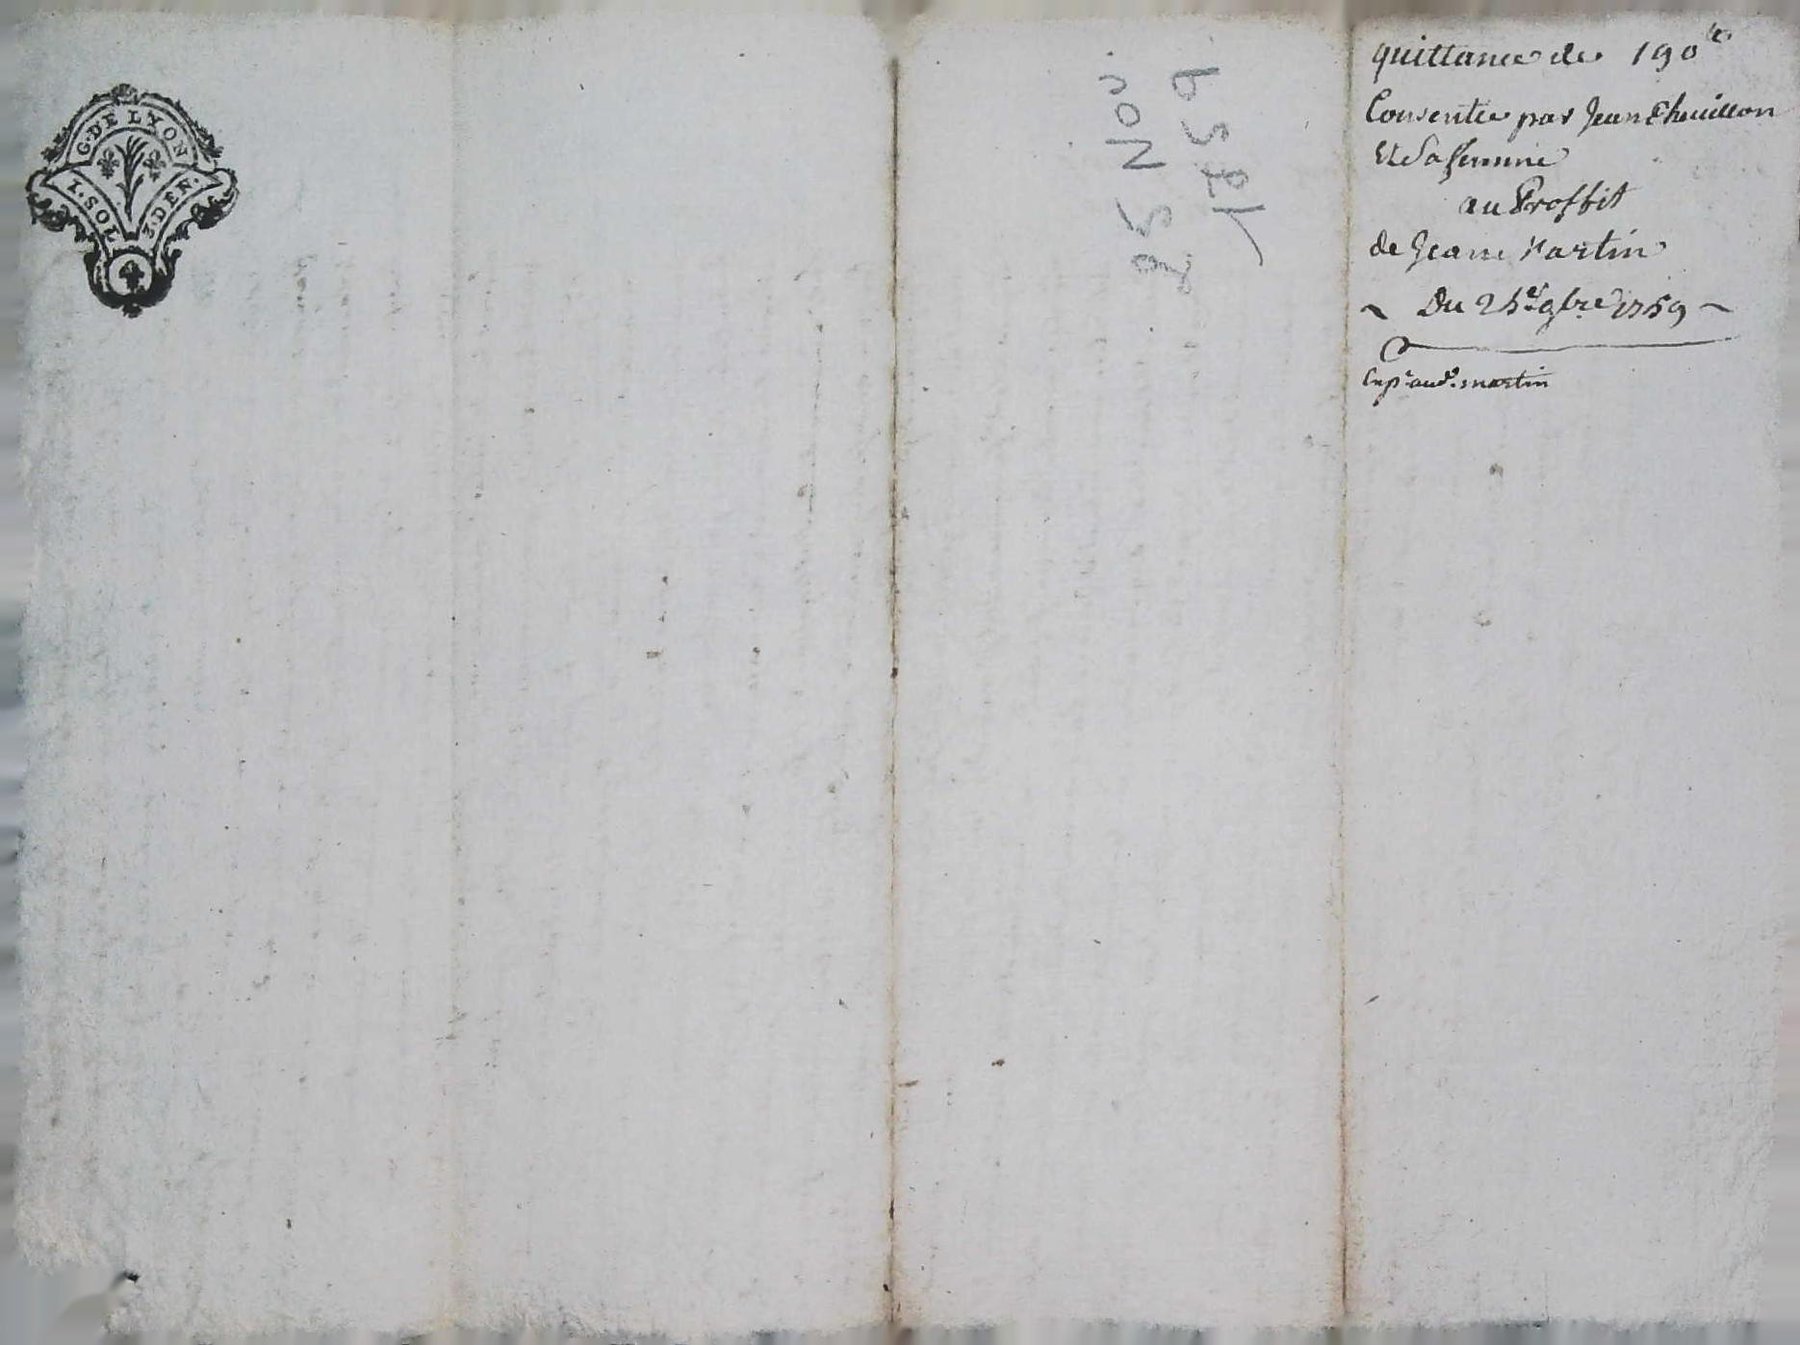 G. DE LYON
I. SOL
3. DEN.
25 Nov
1759
quittance de 190#
Consentie par Jean
Et Sa femme
au Proffit
de Jean Martin
~ Du 25e 9bre 1759 ~
Exp. aud. martin